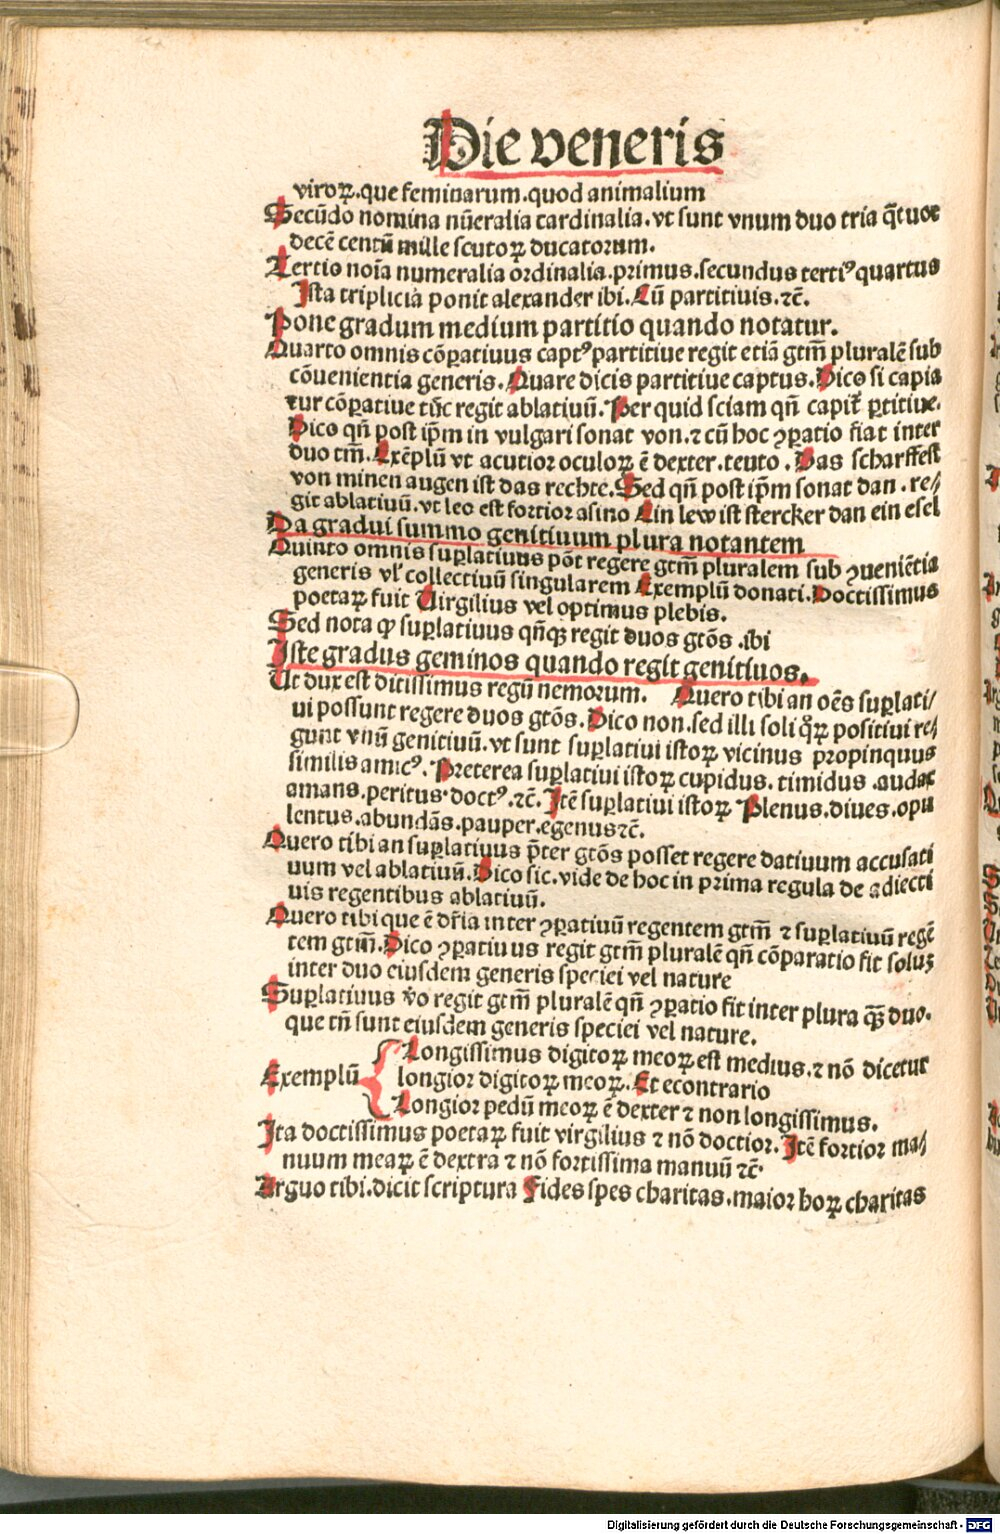 Die veneris
viroꝝ.que feminarum.quod animalium
Secūdo nomina nūeralia cardinalia.vt sunt vnum duo tria q̄tuoꝛ
decē centū mille scutoꝝ ducatorum.
Tertio noīa numeralia ordinalia.primus.secundus tertiꝰ quartus
Ista triplicia ponit alexander ibi.Cū partitiuis.⁊c̄.
Pone gradum medium partitio quando notatur.
Quarto omnis cōꝑatiuus captꝰ partitiue regit etiā gtm̄ pluralē sub
cōuenientia generis.Quare dicis partitiue captus.Dico si capia
tur cōꝑatiue tūc regit ablatiuū.Per quid sciam qn̄ capit̄ ꝑtitiue.
Dico qn̄ post ip̄m in vulgari sonat von.⁊ cū hoc ꝯꝑatio fiat inter
duo tm̄.Exēplū vt acutior oculoꝝ ē dexter.teuto.Das scharffest
von minen augen ist das rechte.Sed qn̄ post ip̄m sonat dan.re⸗
git ablatiuū.vt leo est fortior asino Ein lew ist stercker dan ein esel
Da gradui summo genitiuum plura notantem
Quinto omnis suꝑlatiuus pōt regere gtm̄ pluralem sub ꝯueniētia
generis vl̕ collectiuū singularem Exemplū donati.Doctissimus
poetaꝝ fuit Uirgilius vel optimus plebis.
Sed nota ꝙ suꝑlatiuus qn̄qꝫ regit duos gtōs.ibi
Iste gradus geminos quando regit genitiuos.
Ut dux est ditissimus regū nemorum. Quero tibi an oēs suꝑlati⸗
ui possunt regere duos gtōs.Dico non.sed illi soli q̊ꝝ positiui re⸗
gunt vnū genitiuū.vt sunt suꝑlatiui istoꝝ vicinus propinquus
similis amicꝰ.Preterea suꝑlatiui istoꝝ cupidus.timidus.audax
amans.peritus.doctꝰ.⁊c̄.Itē suꝑlatiui istoꝝ Plenus.diues.opu
lentus.abundās.pauper.egenus⁊c̄.
Quero tibi an suꝑlatiuus p̄ter gtōs posset regere datiuum accusati
uum vel ablatiuū.Dico sic.vide de hoc in prima regula de adiecti
uis regentibus ablatiuū.
Quero tibi que ē dr̄ia inter ꝯꝑatiuū regentem gtm̄ ⁊ suꝑlatiuū regē
tem gtm̄.Dico ꝯꝑatiuus regit gtm̄ pluralē qn̄ cōparatio fit soluꝫ
inter duo eiusdem generis speciei vel nature
Suꝑlatiuus v̊o regit gtm̄ pluralē qn̄ ꝯꝑatio fit inter plura qꝫ̄ duo.
que tn̄ sunt eiusdem generis speciei vel nature.
Longissimus digitoꝝ meoꝝ est medius.⁊ nō dicetur
Exemplū longior digitoꝝ meoꝝ.Et econtrario
Longior pedū meoꝝ ē dexter ⁊ non longissimus.
Ita doctissimus poetaꝝ fuit virgilius ⁊ nō doctior.Itē fortior ma⸗
nuum meaꝝ ē dextra ⁊ nō fortissima manuū ⁊c̄.
Arguo tibi.dicit scriptura Fides spes charitas.maior hoꝝ charitas
Digitalisierung gefördert durch die Deutsche Forschungsgemeinschaft - DFG